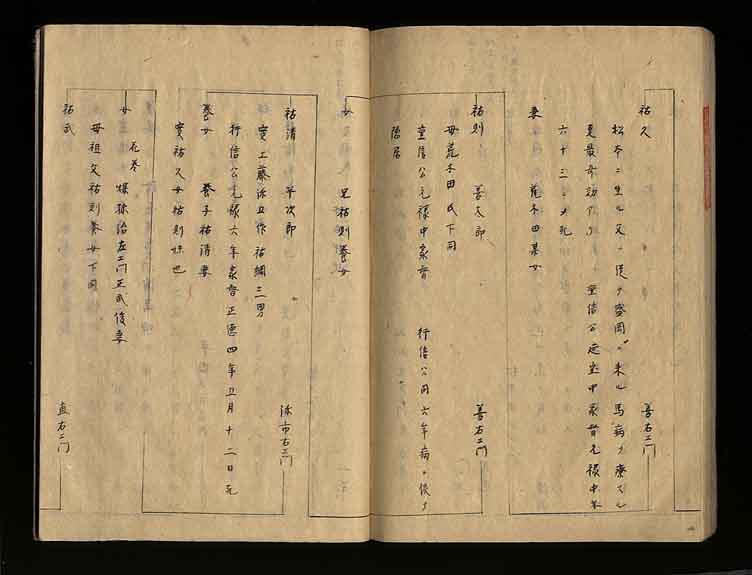 祐久 善右エ門
松本ニ生ル父ニ従テ盛岡ニ来ル馬病ヲ療スル
更最奇効アリ 重信公延宝中家督元禄中年
六十三ニメ死
妻 荒木田某女
祐則 善太郎 善右エ門
母荒木田氏下同
重信公元禄中家督 行信公同六年病ニ依テ
隠居
女 兄祐則養女
祐清 平次郎 弥市右エ門
実工藤弥五作祐綱三男
行信公元禄六年家督正徳四年五月十二日死
養女 養子祐清妻
実祐久女祐則妹也
女 花巻 煤孫治左エ門正武後妻
母祖父祐則養女下同
祐武 直右エ門